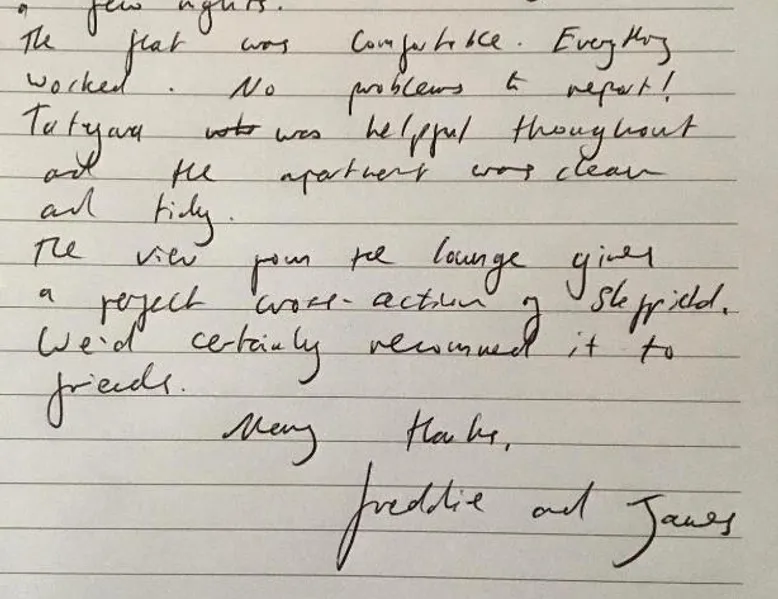 a few nights.
The flat was comfortable. Everything
worked. No problems to report!
Tatyana was helpful thoughout
and the apartment was clean
and tidy.
The view from the lounge gives
a perfect cross-action of Sheffield.
We'd certainly recommend it to
friends.
Many thanks,
Freddie and James